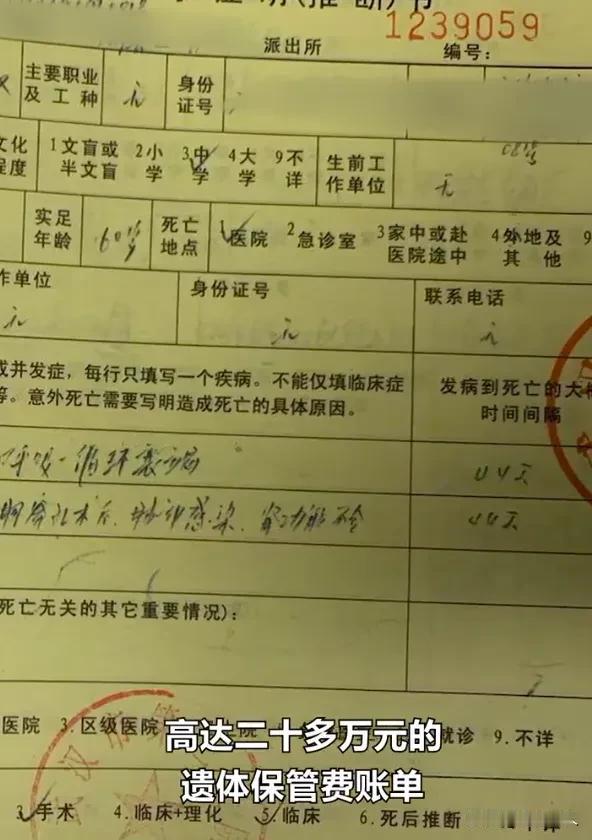 (推断)书
1239059
派出所 编号:
主要职业及工种 无 身份证号
文化程度 1文盲或半文盲 2小学 3中学 4大学 9不详 生前工作单位 无
实足年龄 60岁 死亡地点 1医院 2急诊室 3家中或赴医院途中 4外地及其他 9
作单位 身份证号 联系电话
无 无 无
或并发症，每行只填写一个疾病。不能仅填临床症 发病到死亡的大概
等。意外死亡需要写明造成死亡的具体原因。 时间间隔
呼吸-循环衰竭 44天
术后、肺部感染、肾功能不全 44天
死亡无关的其它重要情况):
医院 3.区级医院 就诊 9.不详
3.手术 4.临床+理化 5.临床 6.死后推断
高达二十多万元的
遗体保管费账单